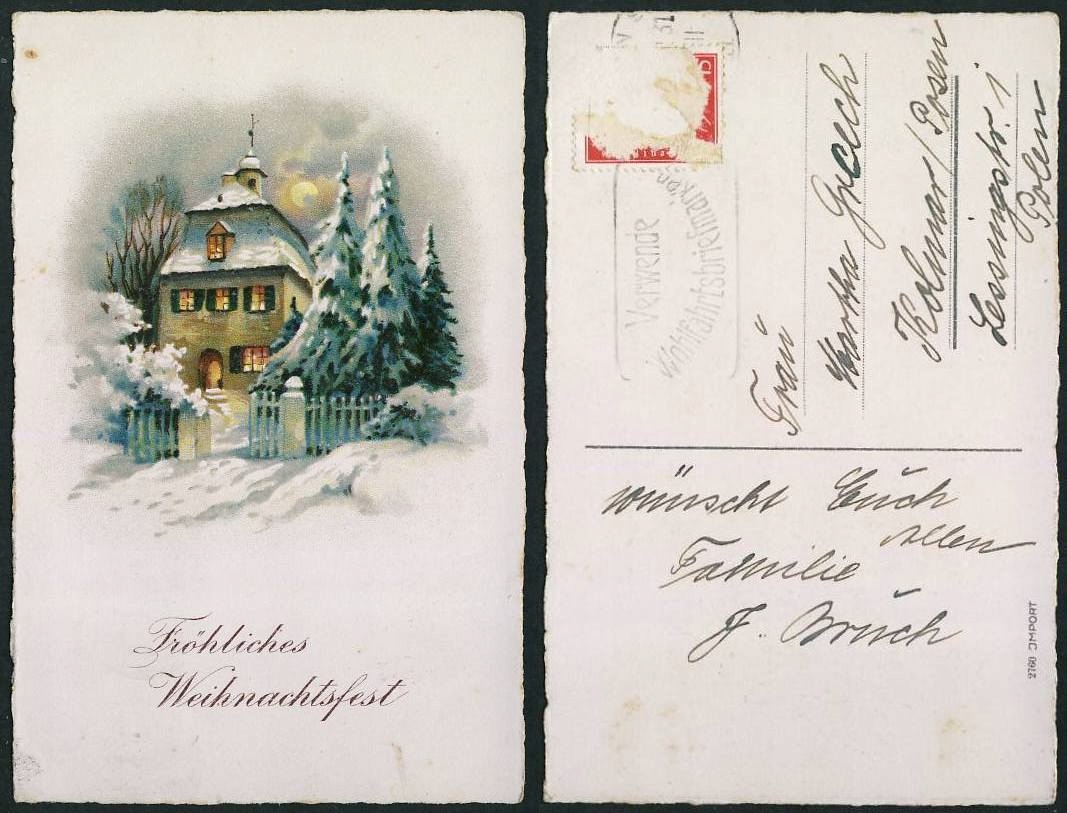 Fröhliches
Weihnachtsfest
31
Verwende
Wohlfahrtsbriefmarken
Frau
Martha
Kolmar/Posen
Lessingstr. 1
Polen
wünscht Euch
Allen
Familie
J. Bruch
2760 IMPORT